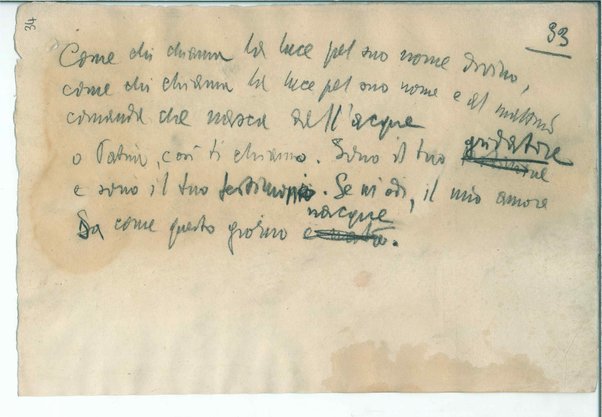 34
33
Come chi chiama la luce pel suo nome divino,
come chi chiama la luce pel suo nome e al mattino
comanda che nasca dall'acque
gridatore
o Patria, così ti chiamo. Sono il tuo
e sono il tuo testimonio. Se m'odi, il mio amore
nacque
Sa come questo giorno è nato.